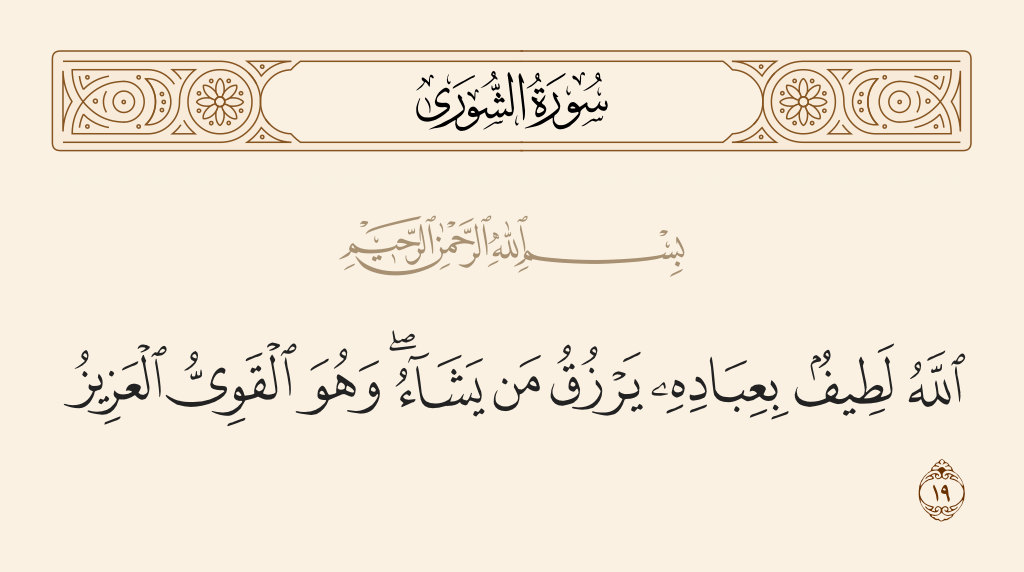 سُورَةُ الشُّورَىٰ
بِسْمِ ٱللَّهِ ٱلرَّحْمَٰنِ ٱلرَّحِيمِ
ٱللَّهُ لَطِيفٌۢ بِعِبَادِهِۦ يَرْزُقُ مَن يَشَآءُ ۖ وَهُوَ ٱلْقَوِىُّ ٱلْعَزِيزُ
١٩